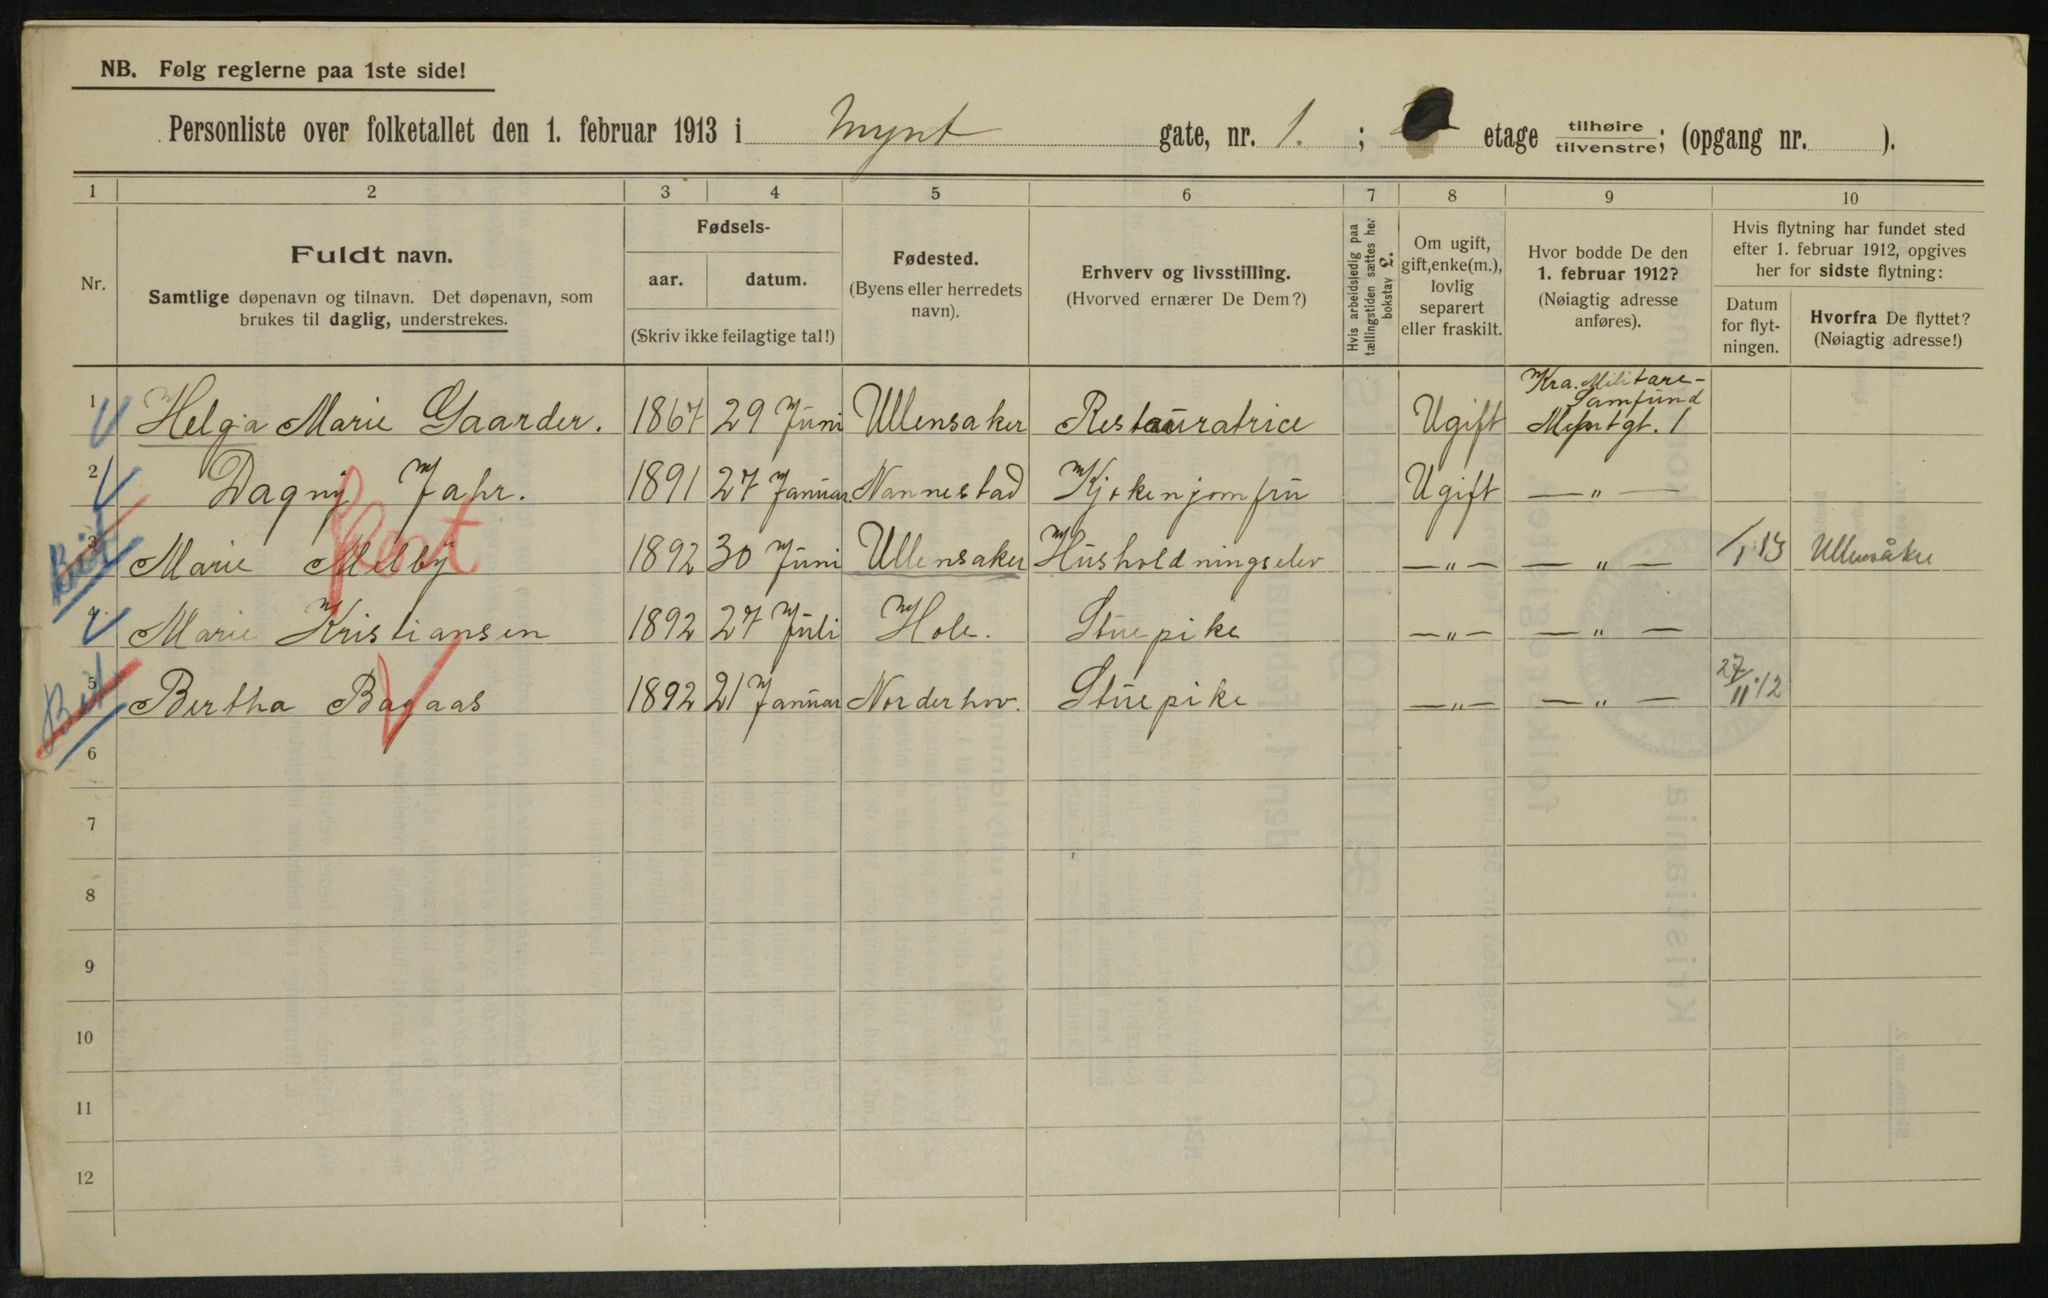 NB. Følg reglerne paa 1ste side!
Personliste over folketallet den 1. februar 1913 i Mynt gate, nr. 1. ; etage tilhøire tilvenstre; (opgang nr. ).
1 2 3 4 5 6 7 8 9 10
Nr.
Fuldt navn.
Samtlige døpenavn og tilnavn. Det døpenavn, som
brukes til daglig, understrekes.
Fødsels-
aar. datum.
(Skriv ikke feilagtige tal!)
Fødested.
(Byens eller herredets
navn).
Erhverv og livsstilling.
(Hvorved ernærer De Dem?)
Hvis arbeidsledig paa
tællingstiden sættes her
bokstav L.
Om ugift,
gift, enke(m.),
lovlig
separert
eller fraskilt.
Hvor bodde De den
1. februar 1912?
(Nøiagtig adresse
anføres).
Hvis flytning har fundet sted
efter 1. februar 1912, opgives
her for sidste flytning:
Datum
for flyt-
ningen.
Hvorfra De flyttet?
(Nøiagtig adresse!)
Kra. Militære-
Samfund
1 Helga Marie Gaarder. 1867 29 Juni Ullensaker Restauratrice Ugift Myntgt. 1
2 Dagny Jahr. 1891 27 Januar Nannestad Kjøkenjomfru Ugift — " —
3 Marie Melby 1892 30 Juni Ullensaker Husholdningselev — " — — " — 1/1 13 Ullensåker
4 Marie Kristiansen 1892 27 Juli Hole. Stuepike — " — — " —
5 Bertha Bagaas 1892 21 Januar Norderhov. Stuepike — " — — " — 27/11 12
6
7
8
9
10
11
12